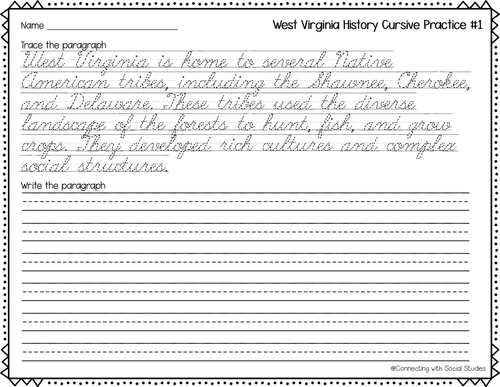 Name
West Virginia History Cursive Practice #1
Trace the paragraph
West Virginia is home to several Native
American tribes, including the Shawnee, Cherokee,
and Delaware. These tribes used the diverse
landscape of the forests to hunt, fish, and grow
crops. They developed rich cultures and complex
social structures.
Write the paragraph
@Connecting with Social Studies